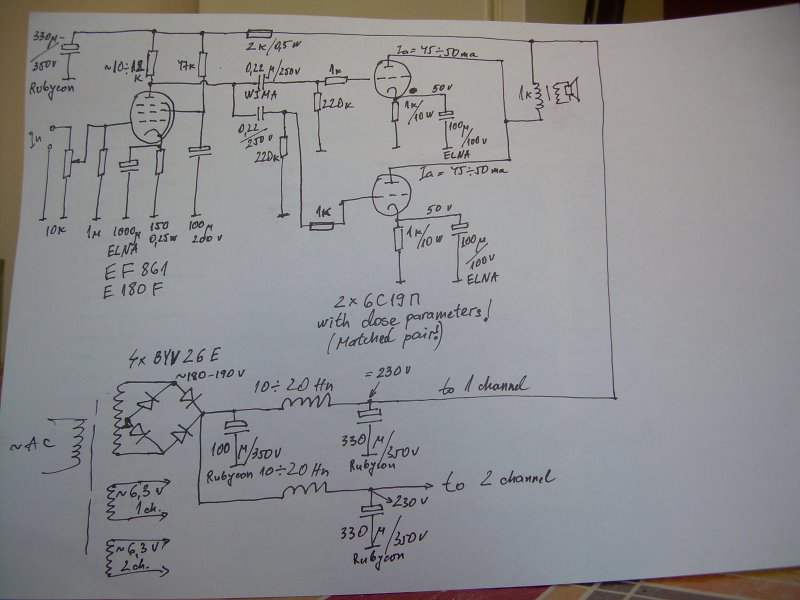 330μ
350V
Rubycon
~10÷18
K
47K
2K/0,5W
0,22 μ/250V
WIMA
0,22
250V
220K
1K
220K
Ia = 45÷50ma
50V
1K
10W
100μ
100V
ELNA
1K
In
10K
1M
1000μ
ELNA
150
0,25W
100μ
200V
EF861
E180F
Ia = 45÷50ma
1K
50V
1K
10W
100μ
100V
ELNA
2x6С19П
with close parameters!
(Matched pair!)
4x BYV26E
~180-190V
~AC
10÷20Hn
=230V
to 1 channel
100 μ/350V
Rubycon
330 μ/350V
Rubycon
10÷20Hn
to 2 channel
230V
330 μ/350V
Rubycon
~6,3V
1ch.
~6,3V
2ch.